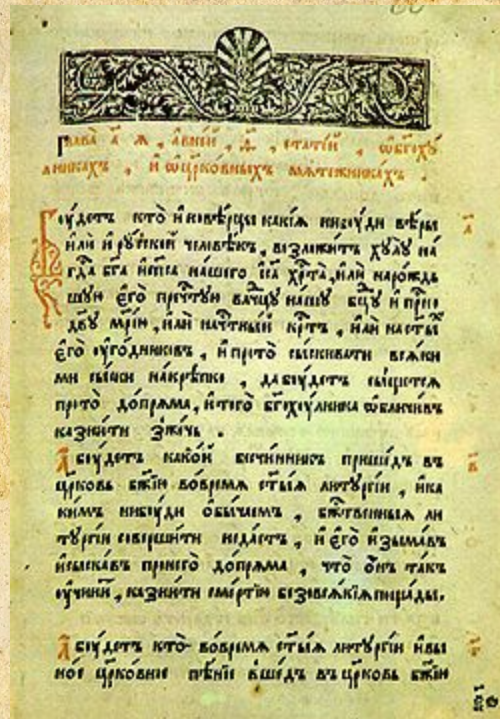 Глава̀ а҃ я , а в ней , д҃ , статей , ѡ҆ бг҃оху
лникахъ , и҆ ѡ҆ цр҃ковныхъ мѧтежникахъ .
Бꙋ́детъ кто̀ и҆новѣ́рцы какі́ѧ нибꙋ́ди вѣ́ры
и҆лѝ и҆ рꙋ́ской человѣ́къ , возложи́тъ хꙋлꙋ̀ на
гд҇а бг҃а и҆ сп҃са на́шего і҆с҃а хр҇та̀ , и҆лѝ наро́ждь
шꙋю є҆го̀ пречⷭ҇тꙋю влⷣчцꙋ на́шꙋ бцⷣꙋ и҆ при́сно
дв҃ꙋ мр҃і́ю , и҆лѝ на чⷭ҇тны́й крⷭ҇тъ , и҆лѝ на ст҃ы́хъ
є҆го̀ ᲂу҆го́дниковъ , и҆ про то̀ сы́скивати всѧ́ки
ми сы́ски накрѣ́пко , да бꙋ́детъ сы́щетсѧ
про то̀ до́прѧма , и҆ того̀ бг҃охꙋ́лника ѡ҆бличи́въ
казни́ти зже́чь .
А҆ бꙋ́детъ како́й безчи́нникъ прише́дъ въ
цр҃ковь бж҃ію во вре́мѧ ст҃ы́ѧ литꙋргі́и , и҆ ка
ки́мъ нибꙋ́ди ѻ҆бы́чаемъ , бж҇твенныѧ ли
тꙋргі́и соверши́ти неда́стъ , и҆ є҆го̀ и҆зыма́въ
и҆ сыска́въ про него̀ до́прѧма , что̀ ѻ҆́нъ та́къ
ᲂу҆чини́тъ , казни́ти сме́ртію безо всѧ́кіѧ поща́ды .
А҆ бꙋ́детъ кто̀ во вре́мѧ ст҃ы́ѧ литꙋргі́и и҆ в ы
но́е цр҃ко́вное пѣ́ніе вше́дъ въ цр҃ковь бж҃ію
а҃
в҃